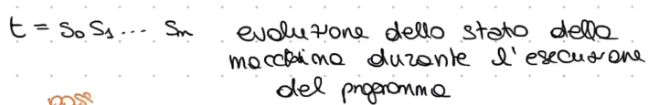 t = S₀ S₁ ... Sₙ evoluzione dello stato della
macchina durante l'esecuzione
del programma
poss